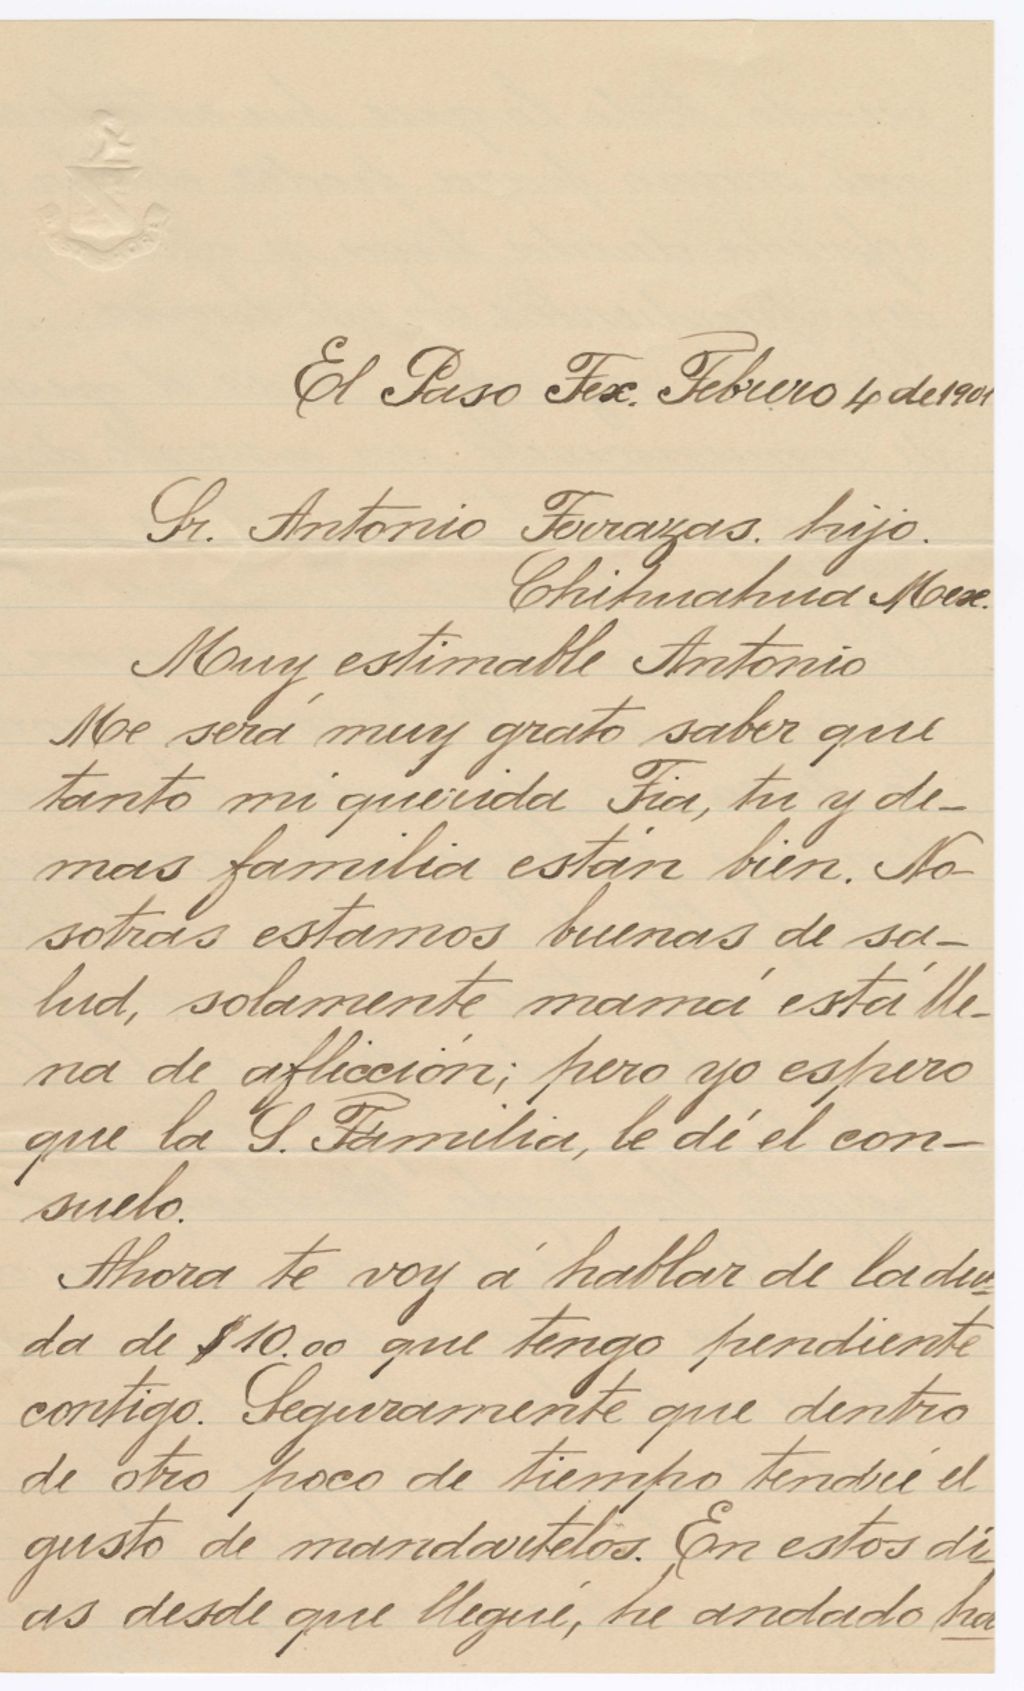 El Paso Tex. Febrero 4 de 1901
Sr. Antonio Terrazas. hijo.
Chihuahua Mex.
Muy estimable Antonio
Me será muy grato saber que
tanto mi querida Tia, tu y de-
mas familia están bien. No-
sotras estamos buenas de sa-
lud, solamente mamá está lle-
na de aflicción; pero yo espero
que la S. Familia, le dé el con-
suelo.
Ahora te voy á hablar de la deu-
da de $10.00 que tengo pendiente
contigo. Seguramente que dentro
de otro poco de tiempo tendré el
gusto de mandartelos. En estos di-
as desde que llegué, he andado ha